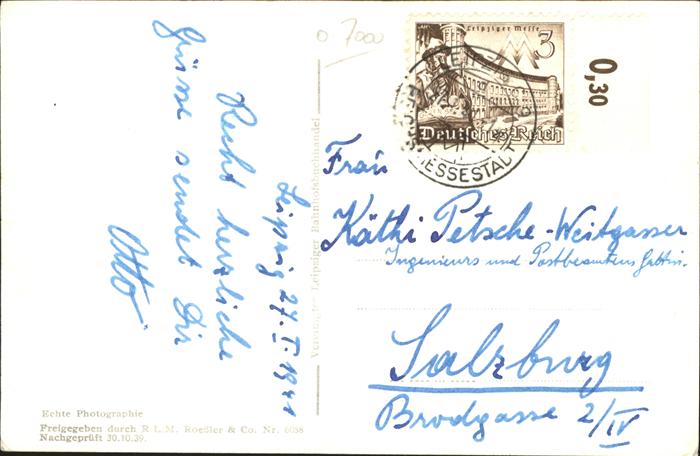 o 7000
Leipziger Messe
3
Deutsches Reich
0,30
LEIPZIG
REICHSMESSESTADT
Leipzig 27.I.1941
Recht herzliche
Grüsse sendet Dir
Otto
Frau
Käthi Petsche-Weitgasser
Ingenieurs und Postbeamtens Gattin.
Salzburg
Brodgasse 2/IV
Vereinigter Leipziger Bahnhofsbuchhandel
Echte Photographie
Freigegeben durch R.L.M. Roeßler & Co. Nr. 6038
Nachgeprüft 30.10.39.